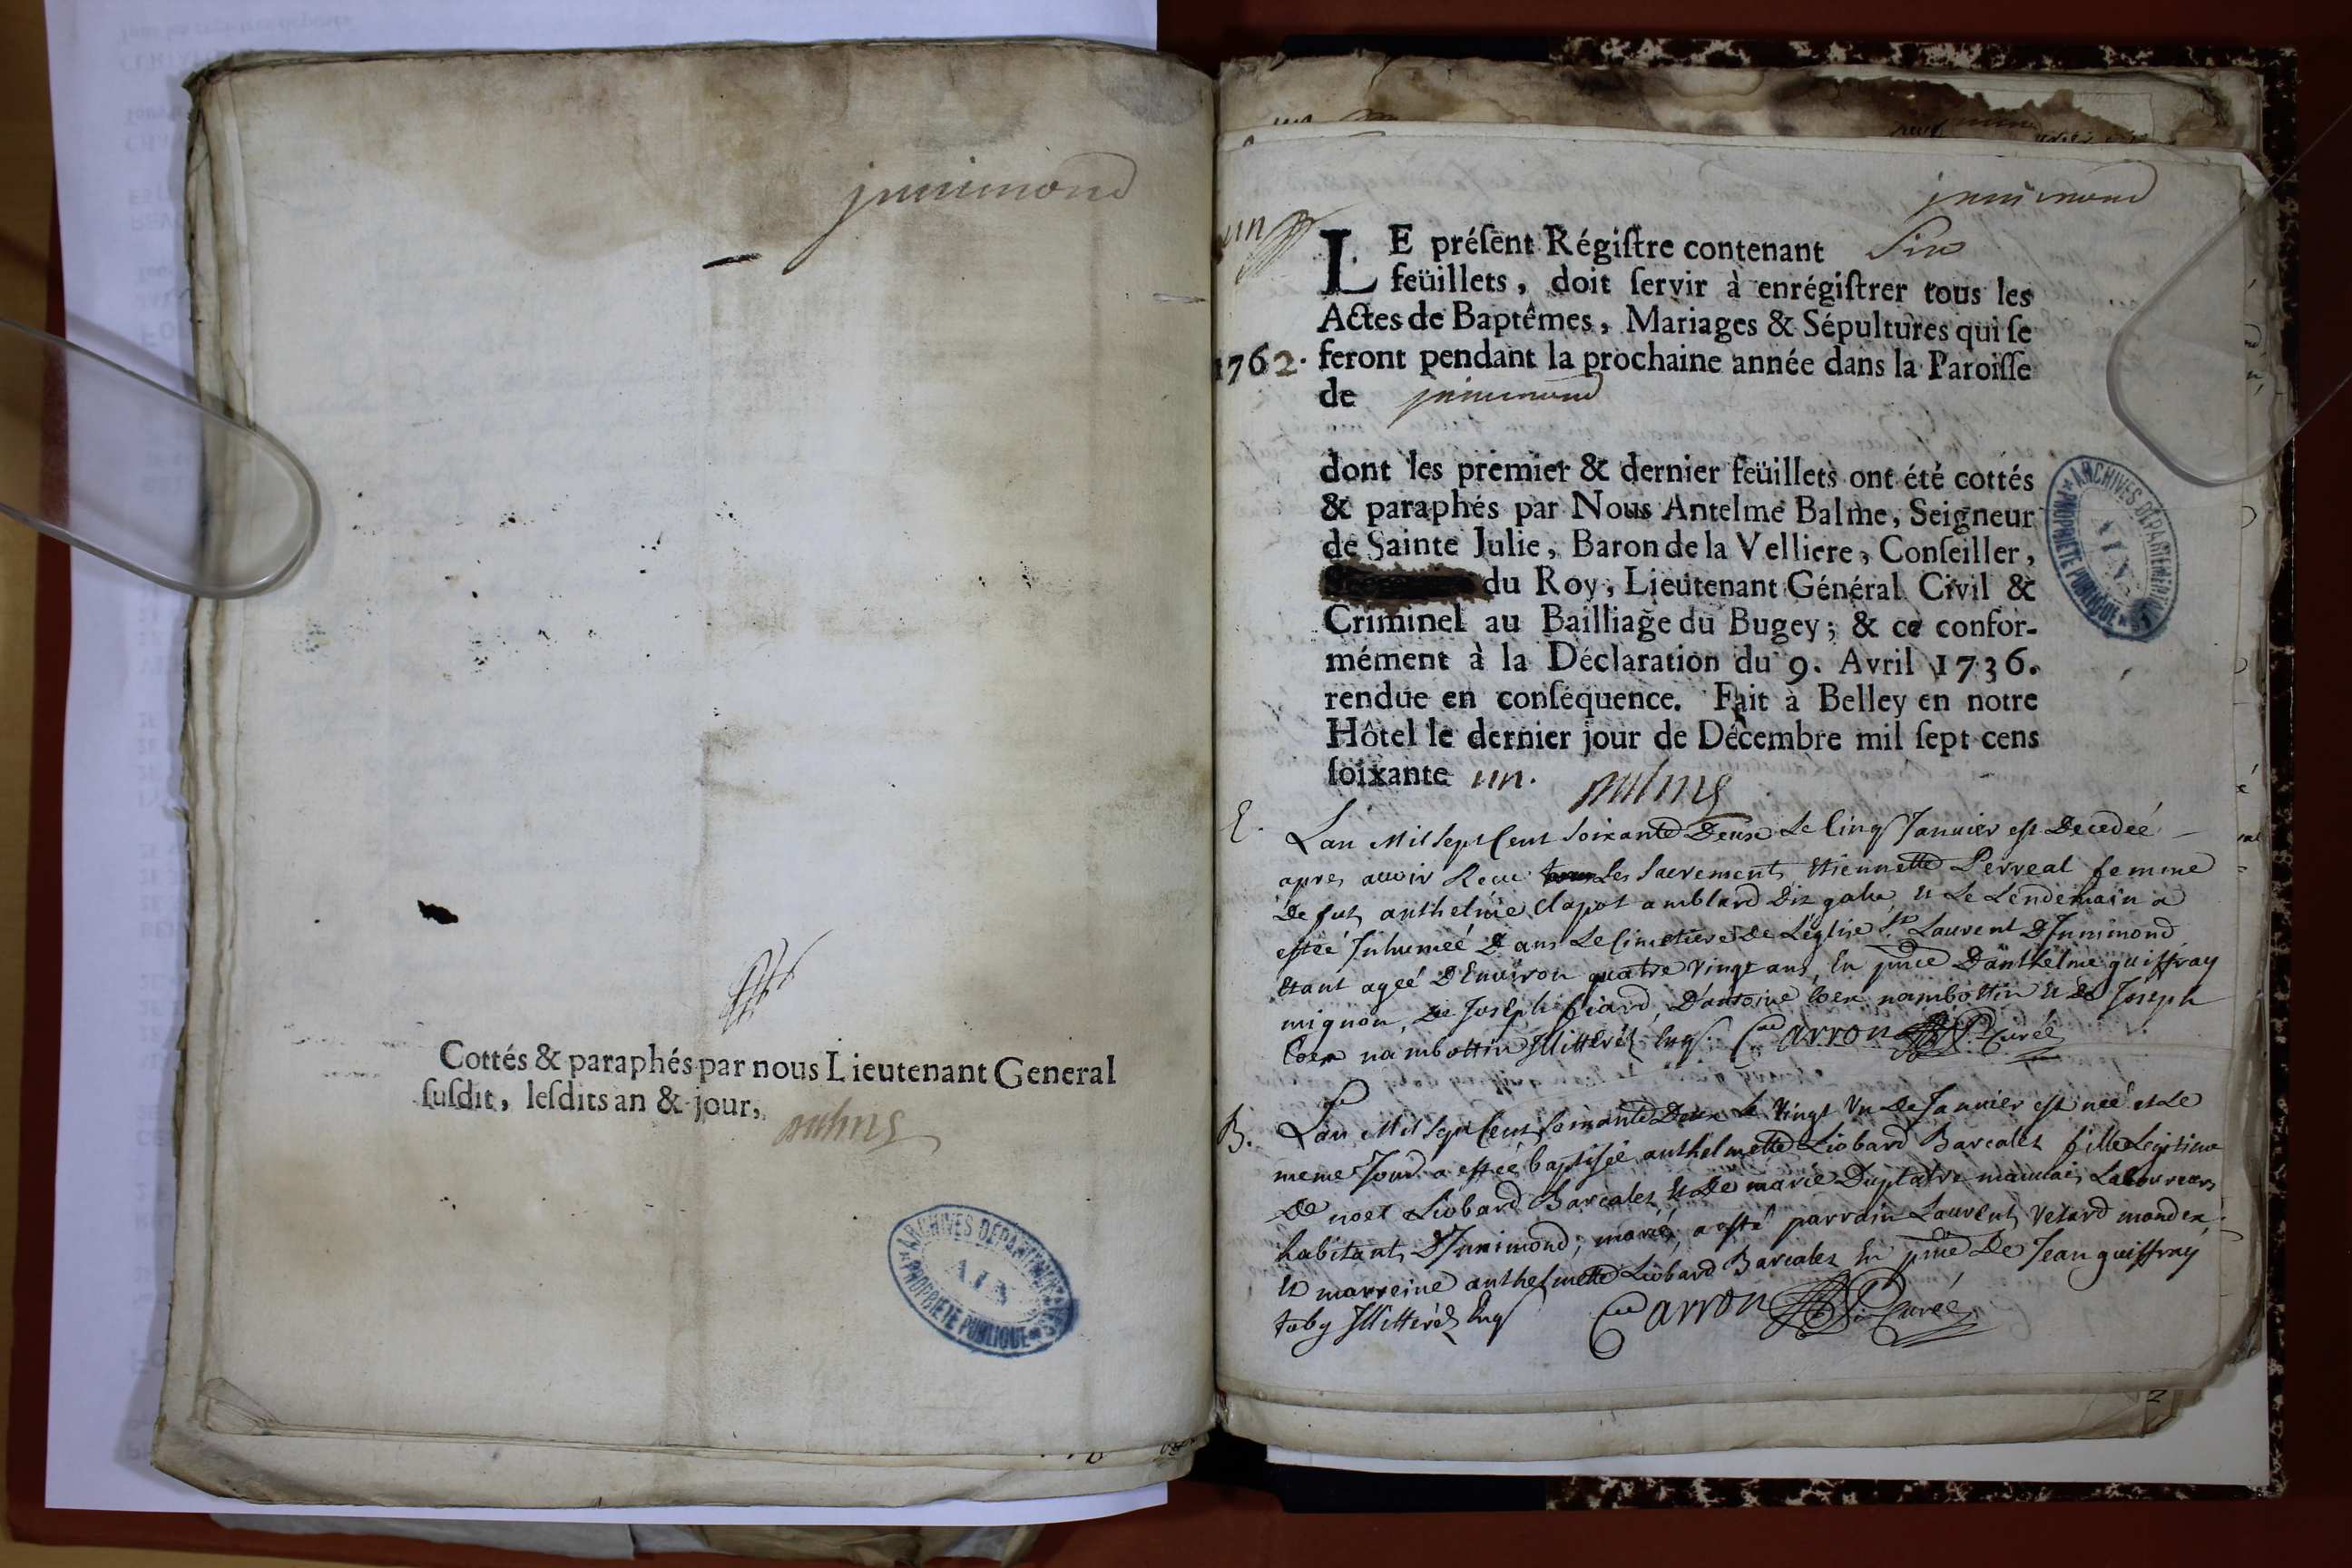 jnnimond
Cottés & paraphés par nous Lieutenant General
susdit, lesdits an & jour,
ARCHIVES DÉPARTEMENTALES
AIN
PROPRIÉTÉ PUBLIQUE
jnnimond
un
LE présent Régistre contenant Six
feüillets, doit servir à enrégistrer tous les
Actes de Baptêmes, Mariages & Sépultures qui se
1762. feront pendant la prochaine année dans la Paroisse
de jnnimond
dont les premier & dernier feüillets ont été cottés
& paraphés par Nous Antelme Balme, Seigneur
de Sainte Julie, Baron de la Velliere, Conseiller,
du Roy, Lieutenant Général Civil &
Criminel au Bailliage du Bugey; & ce confor-
mément à la Déclaration du 9. Avril 1736.
rendue en conséquence. Fait à Belley en notre
Hôtel le dernier jour de Décembre mil sept cens
soixante un.
ARCHIVES DÉPARTEMENTALES
AIN
PROPRIÉTÉ PUBLIQUE
Lan Mil Sept Cent Soixante Deux Le Cinq Janvier est Decedeé
apres avoir Receu Les Sacrements Etiennette Perreal femme
De fut anthelme Clapot amblard Dit galu, et Le Lendemain a
estéé Inhumeé Dans Le Cimetiere De Leglise St Laurent DInnimond
Etant ageé DEnviron quatre vingt ans, En pnce Danthelme guiffray
mignon, de Joseph, Dantoine nambottin et de Joseph
nambottin Illitterés Enq. Carron Curé
B. Lan Mil Sept Cent Soixante Deux Le vingt Un De Janvier est neé et Le
meme Jour a estéé baptiseé anthelmette Liobard Barcalet fille Legitime
De noel Liobard Barcalet et De marie Duplatre Laboureurs
habitants DInnimond, mariés, a esté parrain Laurent
et marreine anthelmette Liobard Barcalet En pnce De Jean guiffray
toby Illitterés Enq Carron Curé